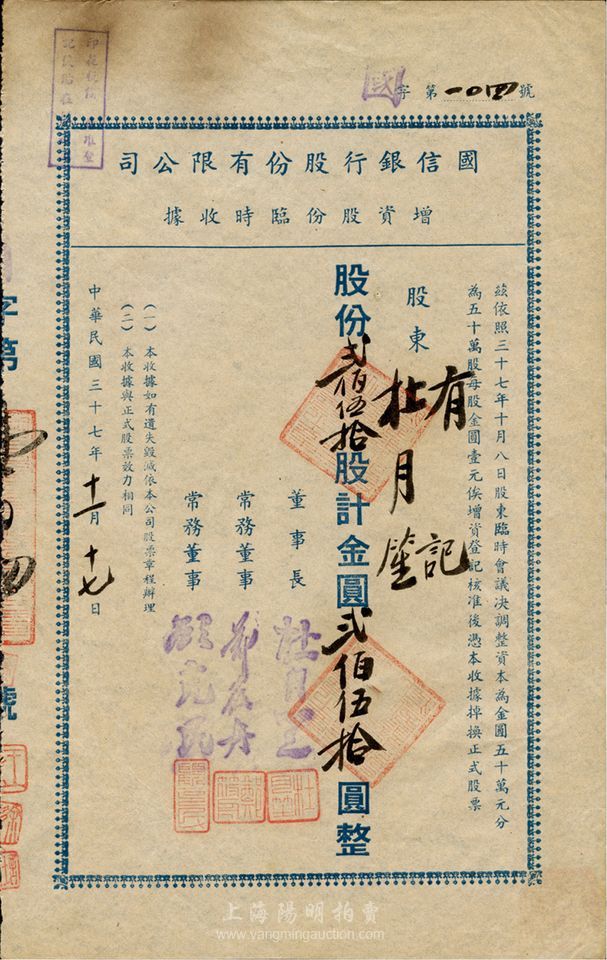 國字第一〇四號
國信銀行股份有限公司
增資股份臨時收據
茲依照三十七年十月八日股東臨時會議決調整資本為金圓五十萬元分
為五十萬股每股金圓壹元俟增資登記核准後憑本收據掉換正式股票
股東 杜月笙 有記
股份弍佰伍拾股計金圓弍佰伍拾圓整
董事長 杜月笙
常務董事
常務董事
（一）本收據如有遺失毀滅依本公司股票章程辦理
（二）本收據與正式股票效力相同
中華民國三十七年十一月十七日
字第
號
上海陽明拍賣
www.yangmingauction.com